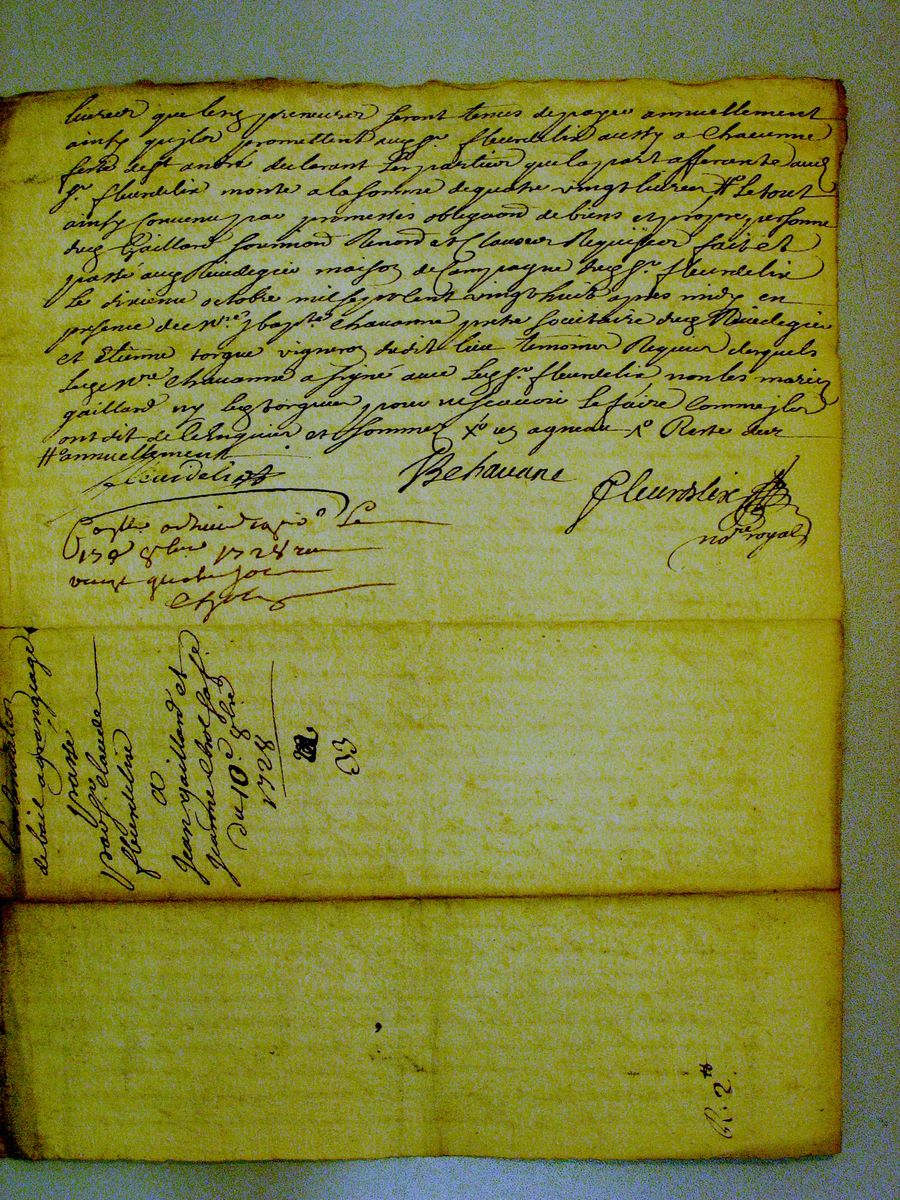 livres que les preneurs seront tenus de payer annuellement
ainsy qu'ils promettent aud Sr. fleurdelix aussy a chacune
feste de st andré declarant les parties que la part afferante aud
Sr. fleurdelix monte a la somme de quatre vingt livres Le tout
ainsy convenu par promesses obligaon de biens et propre personne
desd Gaillard soumions Renons et Clauses Requises fait et
passé aud maison de Campagne dud Sr. fleurdelix
le dixieme octobre mil sept cent vingt huit apres midy en
présence de Mre. Jbapte. Chavanne prete sociétaire dud
et Etienne torgue vigneron dudit lieu temoins Requis desquels
Led Mre. Chavanne a signé avec Led Sr. fleurdelix non les mariés
gaillard ny led torgue pour ne scavoir Le faire comme ils
ont dit de ce enquis et sommés un agneau Reste des
annuellement
fleurdelix
JB Chavane
fleurdelix
nore. royal
le
178 8bre 1728
vingt quatre sols
de bail a grangeage
passé
par Sr. claude
fleurdelix
a
Jean gaillard et
jeanne sa fe.
du 10e 8bre
1728
33
2